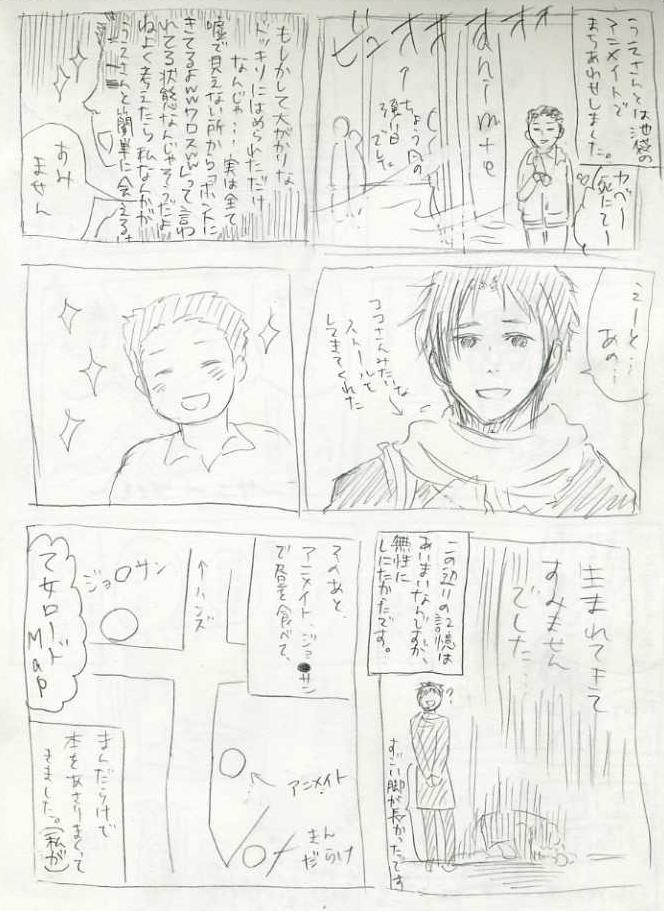 うえさんとは池袋の
アニメイトで
まちあわせしました。
やべー
死にてー
オオオオ
ビンオオ
animate
↑
ちょう月の
強い日
でした
もしかして大がかりな
ドッキリにはめられただけ
なんじゃ…実は全て
嘘で見えない所からｺﾎﾟﾝﾄに
きてるよwwワロスwwって言わ
れてる状態なんじゃそうだよ
ねよく考えたら私なんかが
うえさんと簡単に会えるは
すみ
ません
えーと…
あの…
ココさんみたいな
ストールを
してきてくれた
生まれてきて
すみません
でした…
この辺りの記憶は
あいまいなんですが、
無性に
しにたかったです。
?
すごい脚が長かったです
そのあと、
アニメイト、ジョ●サン
で昼を食べて、
↑ハンズ
ジョ○サン
乙女ロード
Map
アニメイト
まん
だらけ
まんだらけで
本をあさりまくって
きました。(私が)